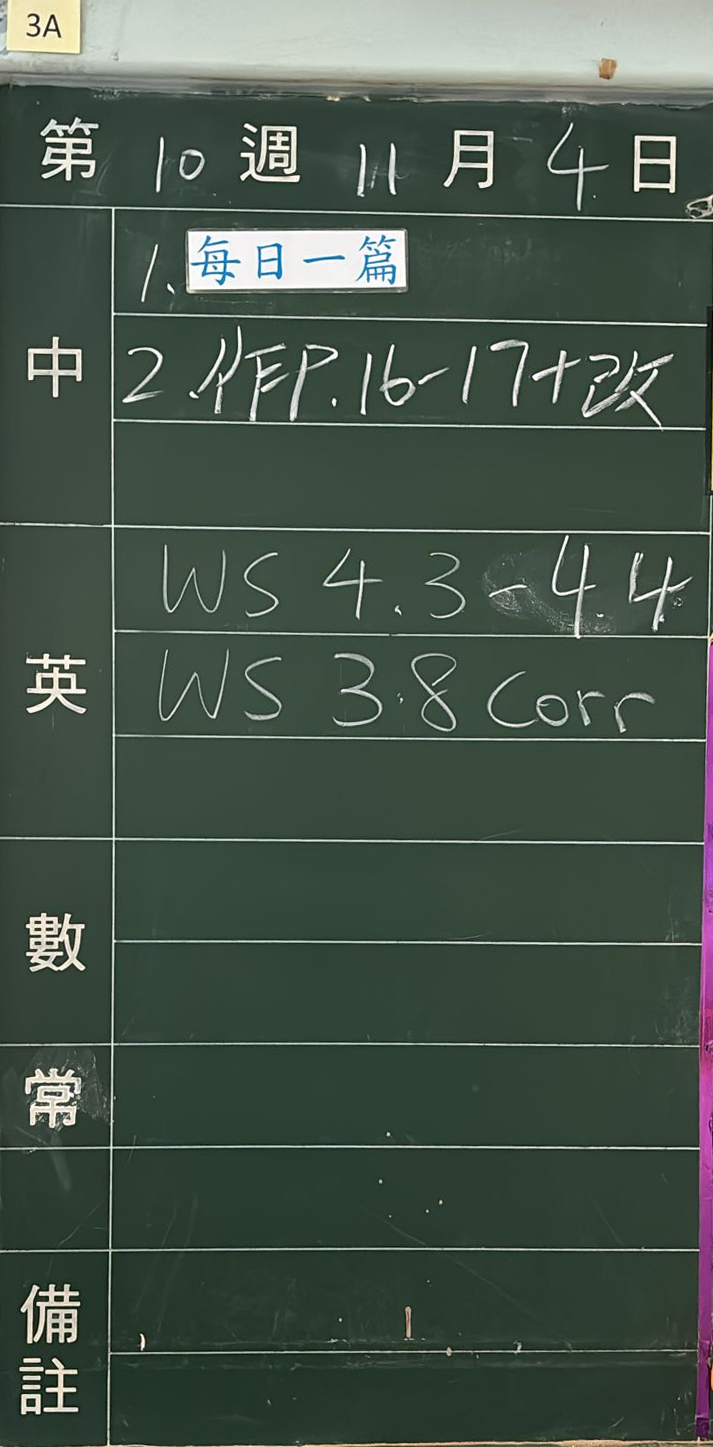 3A
第 10 週 11 月 4 日
中
1. 每日一篇
2. 作P.16-17+改
英
WS 4.3-4.4
WS 3.8 Corr
數
常
備註